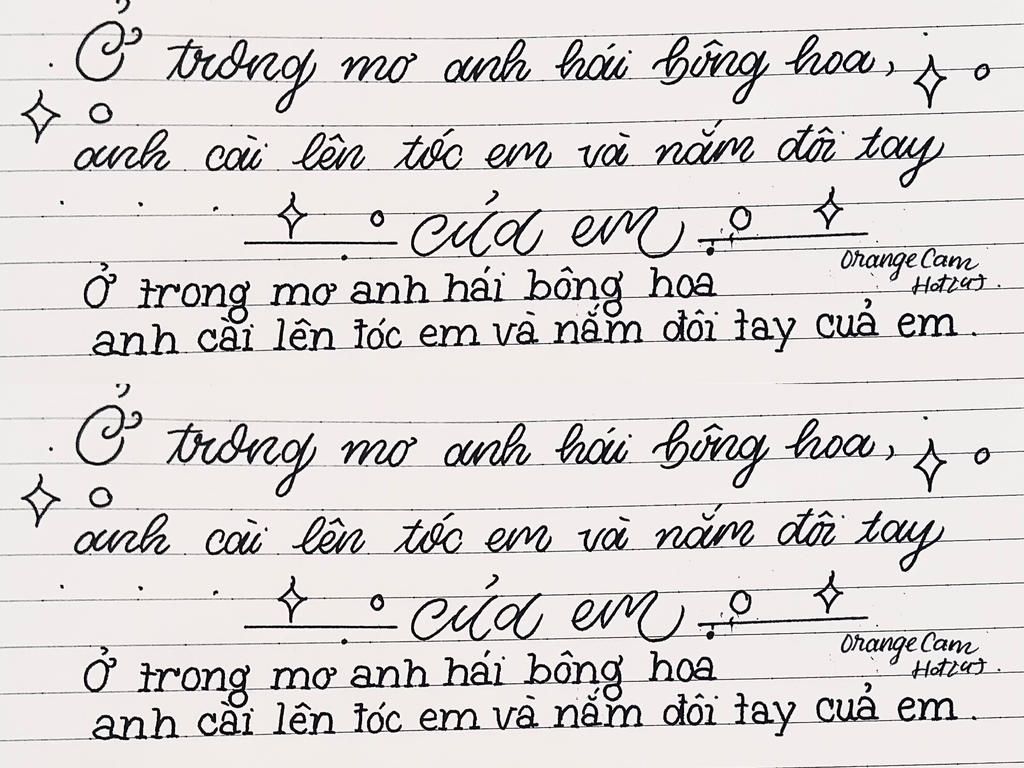 Ở trong mơ anh hái bông hoa,
anh cài lên tóc em và nắm đôi tay
của em
Orange Cam
Ở trong mơ anh hái bông hoa
anh cài lên tóc em và nắm đôi tay cuả em.
Ở trong mơ anh hái bông hoa,
anh cài lên tóc em và nắm đôi tay
của em
Orange Cam
Ở trong mơ anh hái bông hoa
anh cài lên tóc em và nắm đôi tay cuả em.